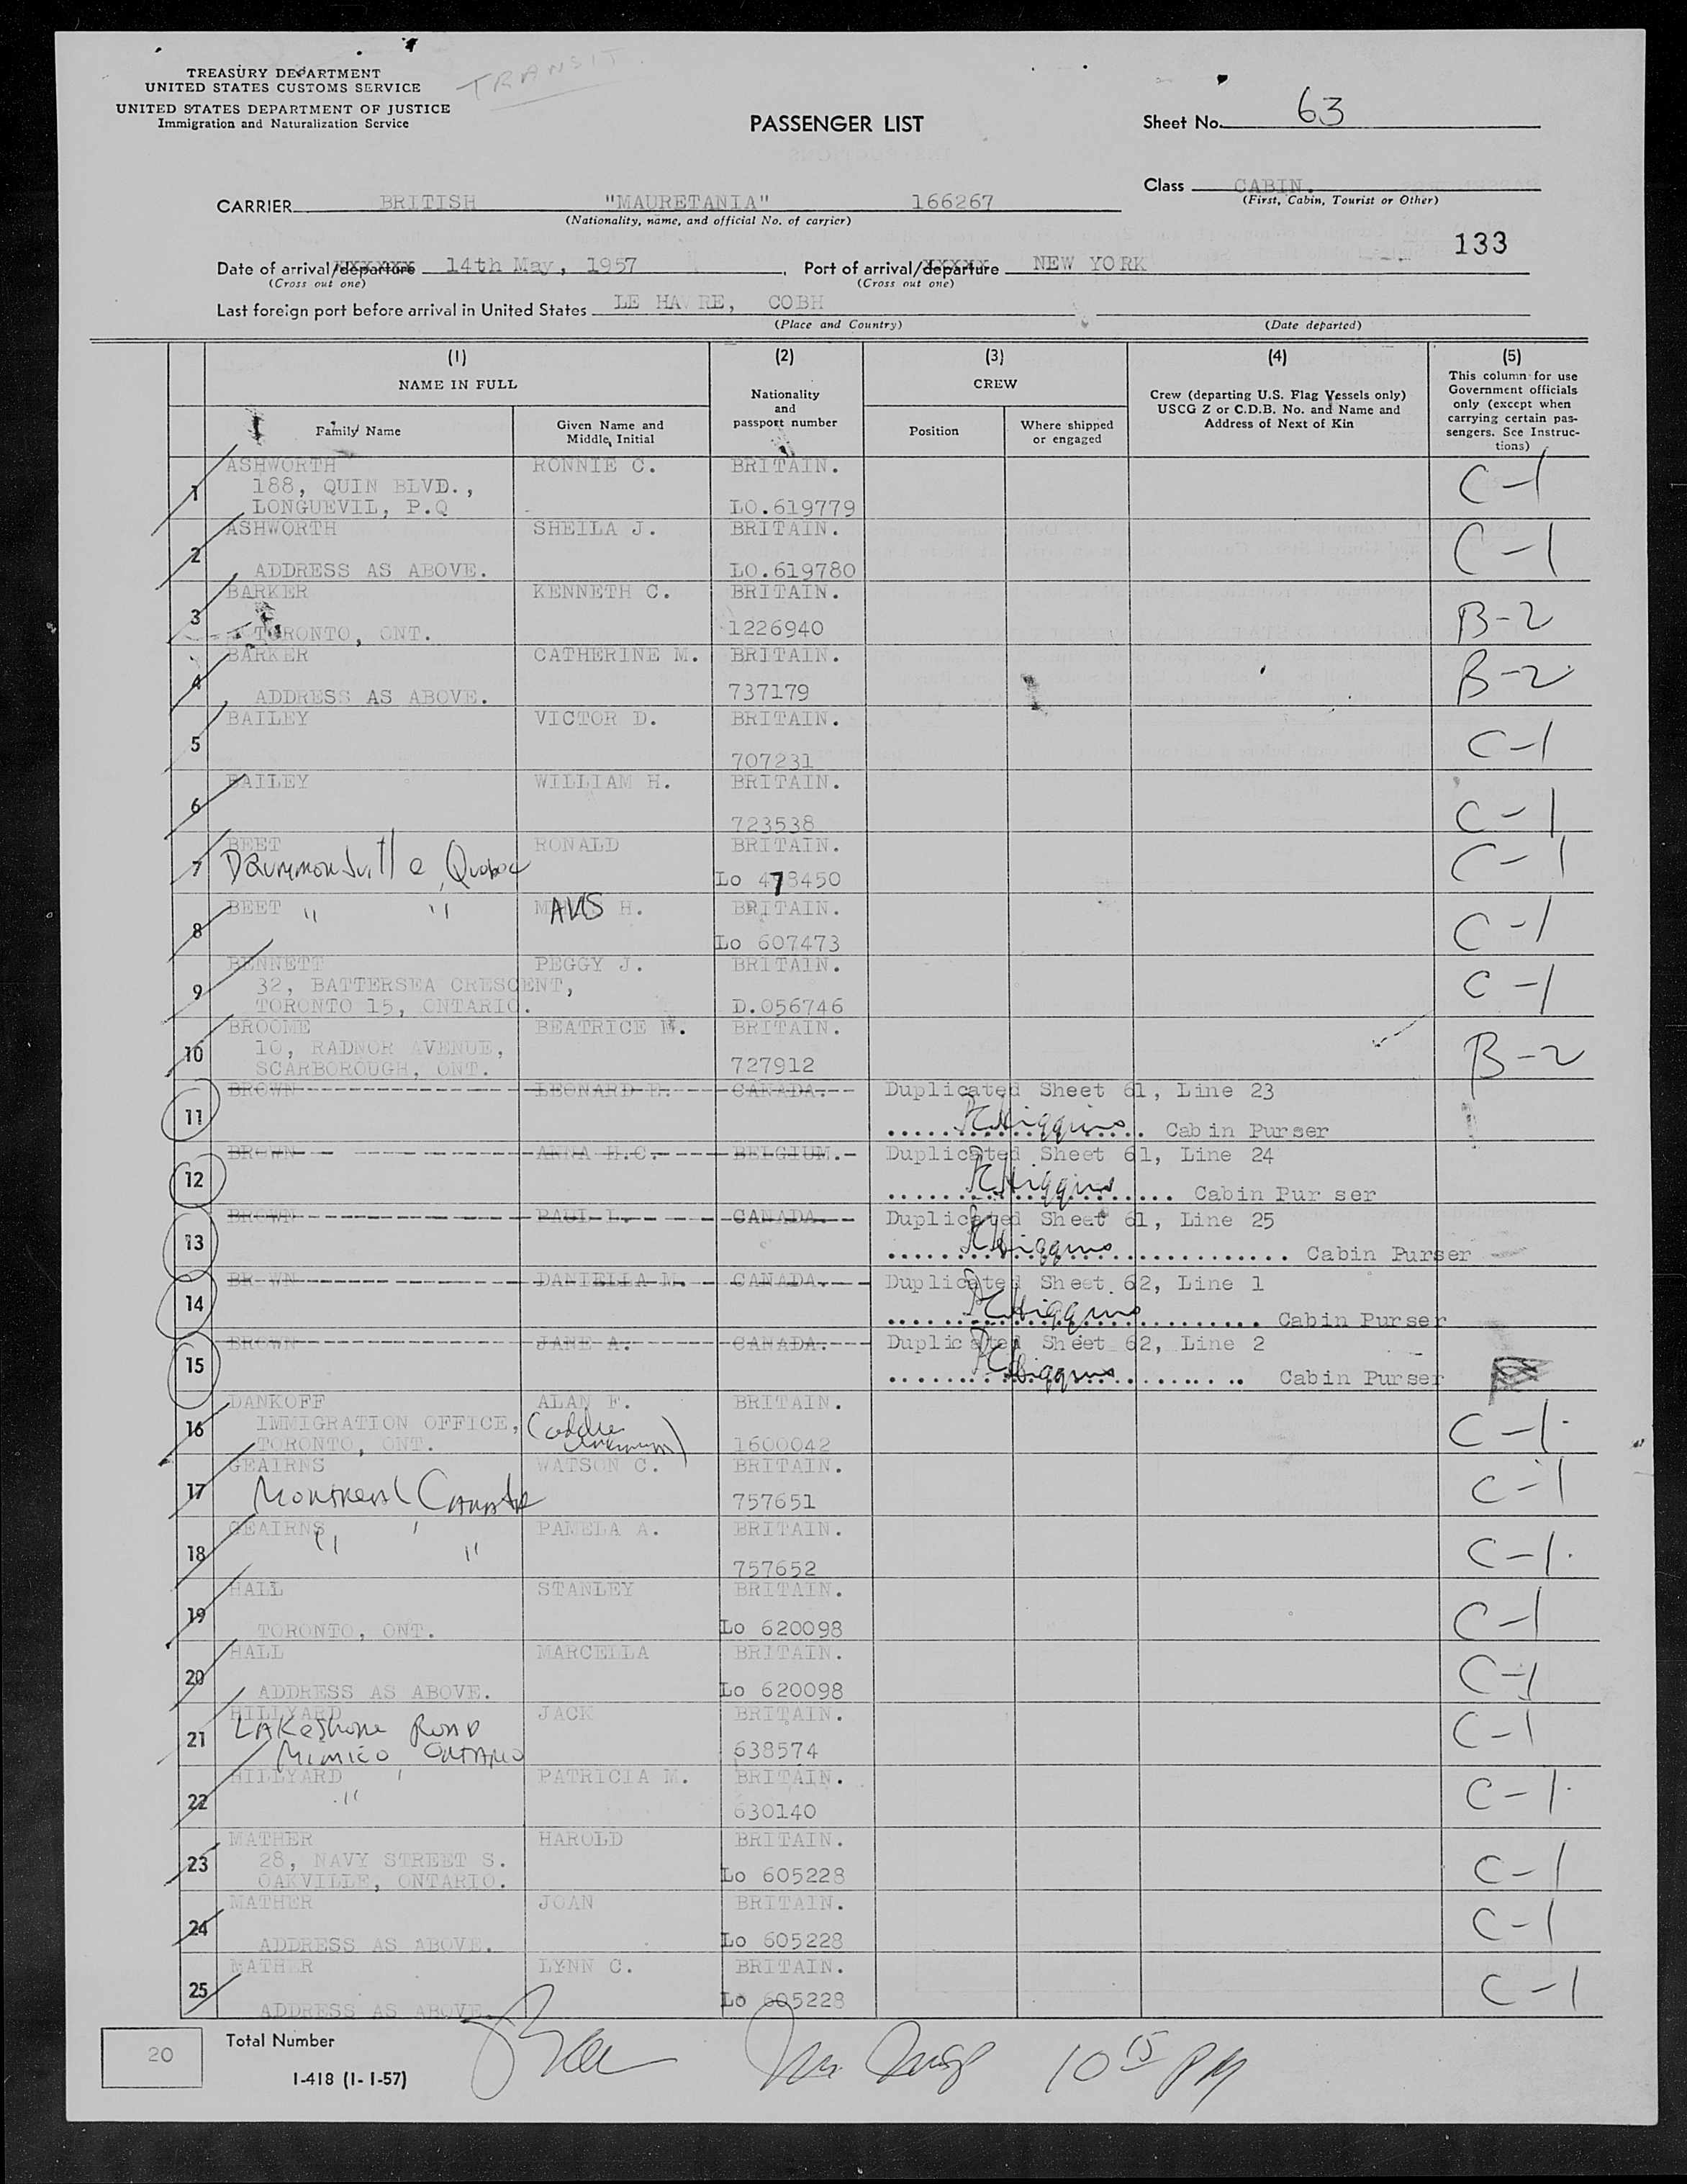 TREASURY DEPARTMENT
UNITED STATES CUSTOMS SERVICE
UNITED STATES DEPARTMENT OF JUSTICE
Immigration and Naturalization Service
TRANSIT
PASSENGER LIST
Sheet No. 63
Class CABIN.
(First, Cabin, Tourist or Other)
CARRIER BRITISH "MAURETANIA" 166267
(Nationality, name, and official No. of carrier)
133
Date of arrival/departure 14th May, 1957, Port of arrival/departure NEW YORK
(Cross out one) (Cross out one)
Last foreign port before arrival in United States LE HAVRE, COBH
(Place and Country) (Date departed)
(1) (2) (3) (4) (5)
NAME IN FULL
Family Name
Given Name and Middle Initial
Nationality and passport number
CREW
Position
Where shipped or engaged
Crew (departing U.S. Flag Vessels only) USCG Z or C.D.B. No. and Name and Address of Next of Kin
This column for use Government officials only (except when carrying certain passengers. See Instructions)
1 ASHWORTH RONNIE C. BRITAIN. C-1
188, QUIN BLVD.,
LONGUEVIL, P.Q LO.619779
2 ASHWORTH SHEILA J. BRITAIN. C-1
ADDRESS AS ABOVE. LO.619780
3 BARKER KENNETH C. BRITAIN. B-2
TORONTO, ONT. 1226940
4 BARKER CATHERINE M. BRITAIN. B-2
ADDRESS AS ABOVE. 737179
5 BAILEY VICTOR D. BRITAIN. C-1
707231
6 BAILEY WILLIAM H. BRITAIN. C-1
723538
7 BEET RONALD BRITAIN. C-1
Drummondville Quebec Lo 478450
8 BEET " " AVIS H. BRITAIN. C-1
Lo 607473
9 BENNETT PEGGY J. BRITAIN. C-1
32, BATTERSEA CRESCENT,
TORONTO 15, ONTARIO. D.056746
10 BROOME BEATRICE BRITAIN. B-2
10, RADNOR AVENUE,
SCARBOROUGH, ONT. 727912
11 BROWN LEONARD CANADA. Duplicated Sheet 61, Line 23
Higgins Cabin Purser
12 BROWN ANNA H.C. BELGIUM. Duplicated Sheet 61, Line 24
Higgins Cabin Purser
13 BROWN PAUL L. CANADA. Duplicated Sheet 61, Line 25
Higgins Cabin Purser
14 BROWN DANIELLA M. CANADA. Duplicated Sheet 62, Line 1
Higgins Cabin Purser
15 BROWN JANE A. CANADA. Duplicated Sheet 62, Line 2
Higgins Cabin Purser
16 DANKOFF ALAN F. BRITAIN. C-1
IMMIGRATION OFFICE,
TORONTO, ONT. 1600042
17 GEAIRNS WATSON C. BRITAIN. C-1
Montreal Canada 757651
18 GEAIRNS " " PAMELA A. BRITAIN. C-1
757652
19 HALL STANLEY BRITAIN. C-1
TORONTO, ONT. Lo 620098
20 HALL MARCELLA BRITAIN. C-1
ADDRESS AS ABOVE. Lo 620098
21 HILLYARD JACK BRITAIN. C-1
Lakeshore Road
Mimico Ontario 638574
22 HILLYARD " PATRICIA M. BRITAIN. C-1
630140
23 MATHER HAROLD BRITAIN. C-1
28, NAVY STREET S.
OAKVILLE, ONTARIO. Lo 605228
24 MATHER JOAN BRITAIN. C-1
ADDRESS AS ABOVE. Lo 605228
25 MATHER LYNN C. BRITAIN. C-1
ADDRESS AS ABOVE. Lo 605228
20 Total Number
I-418 (1-1-57)
10 15 PM